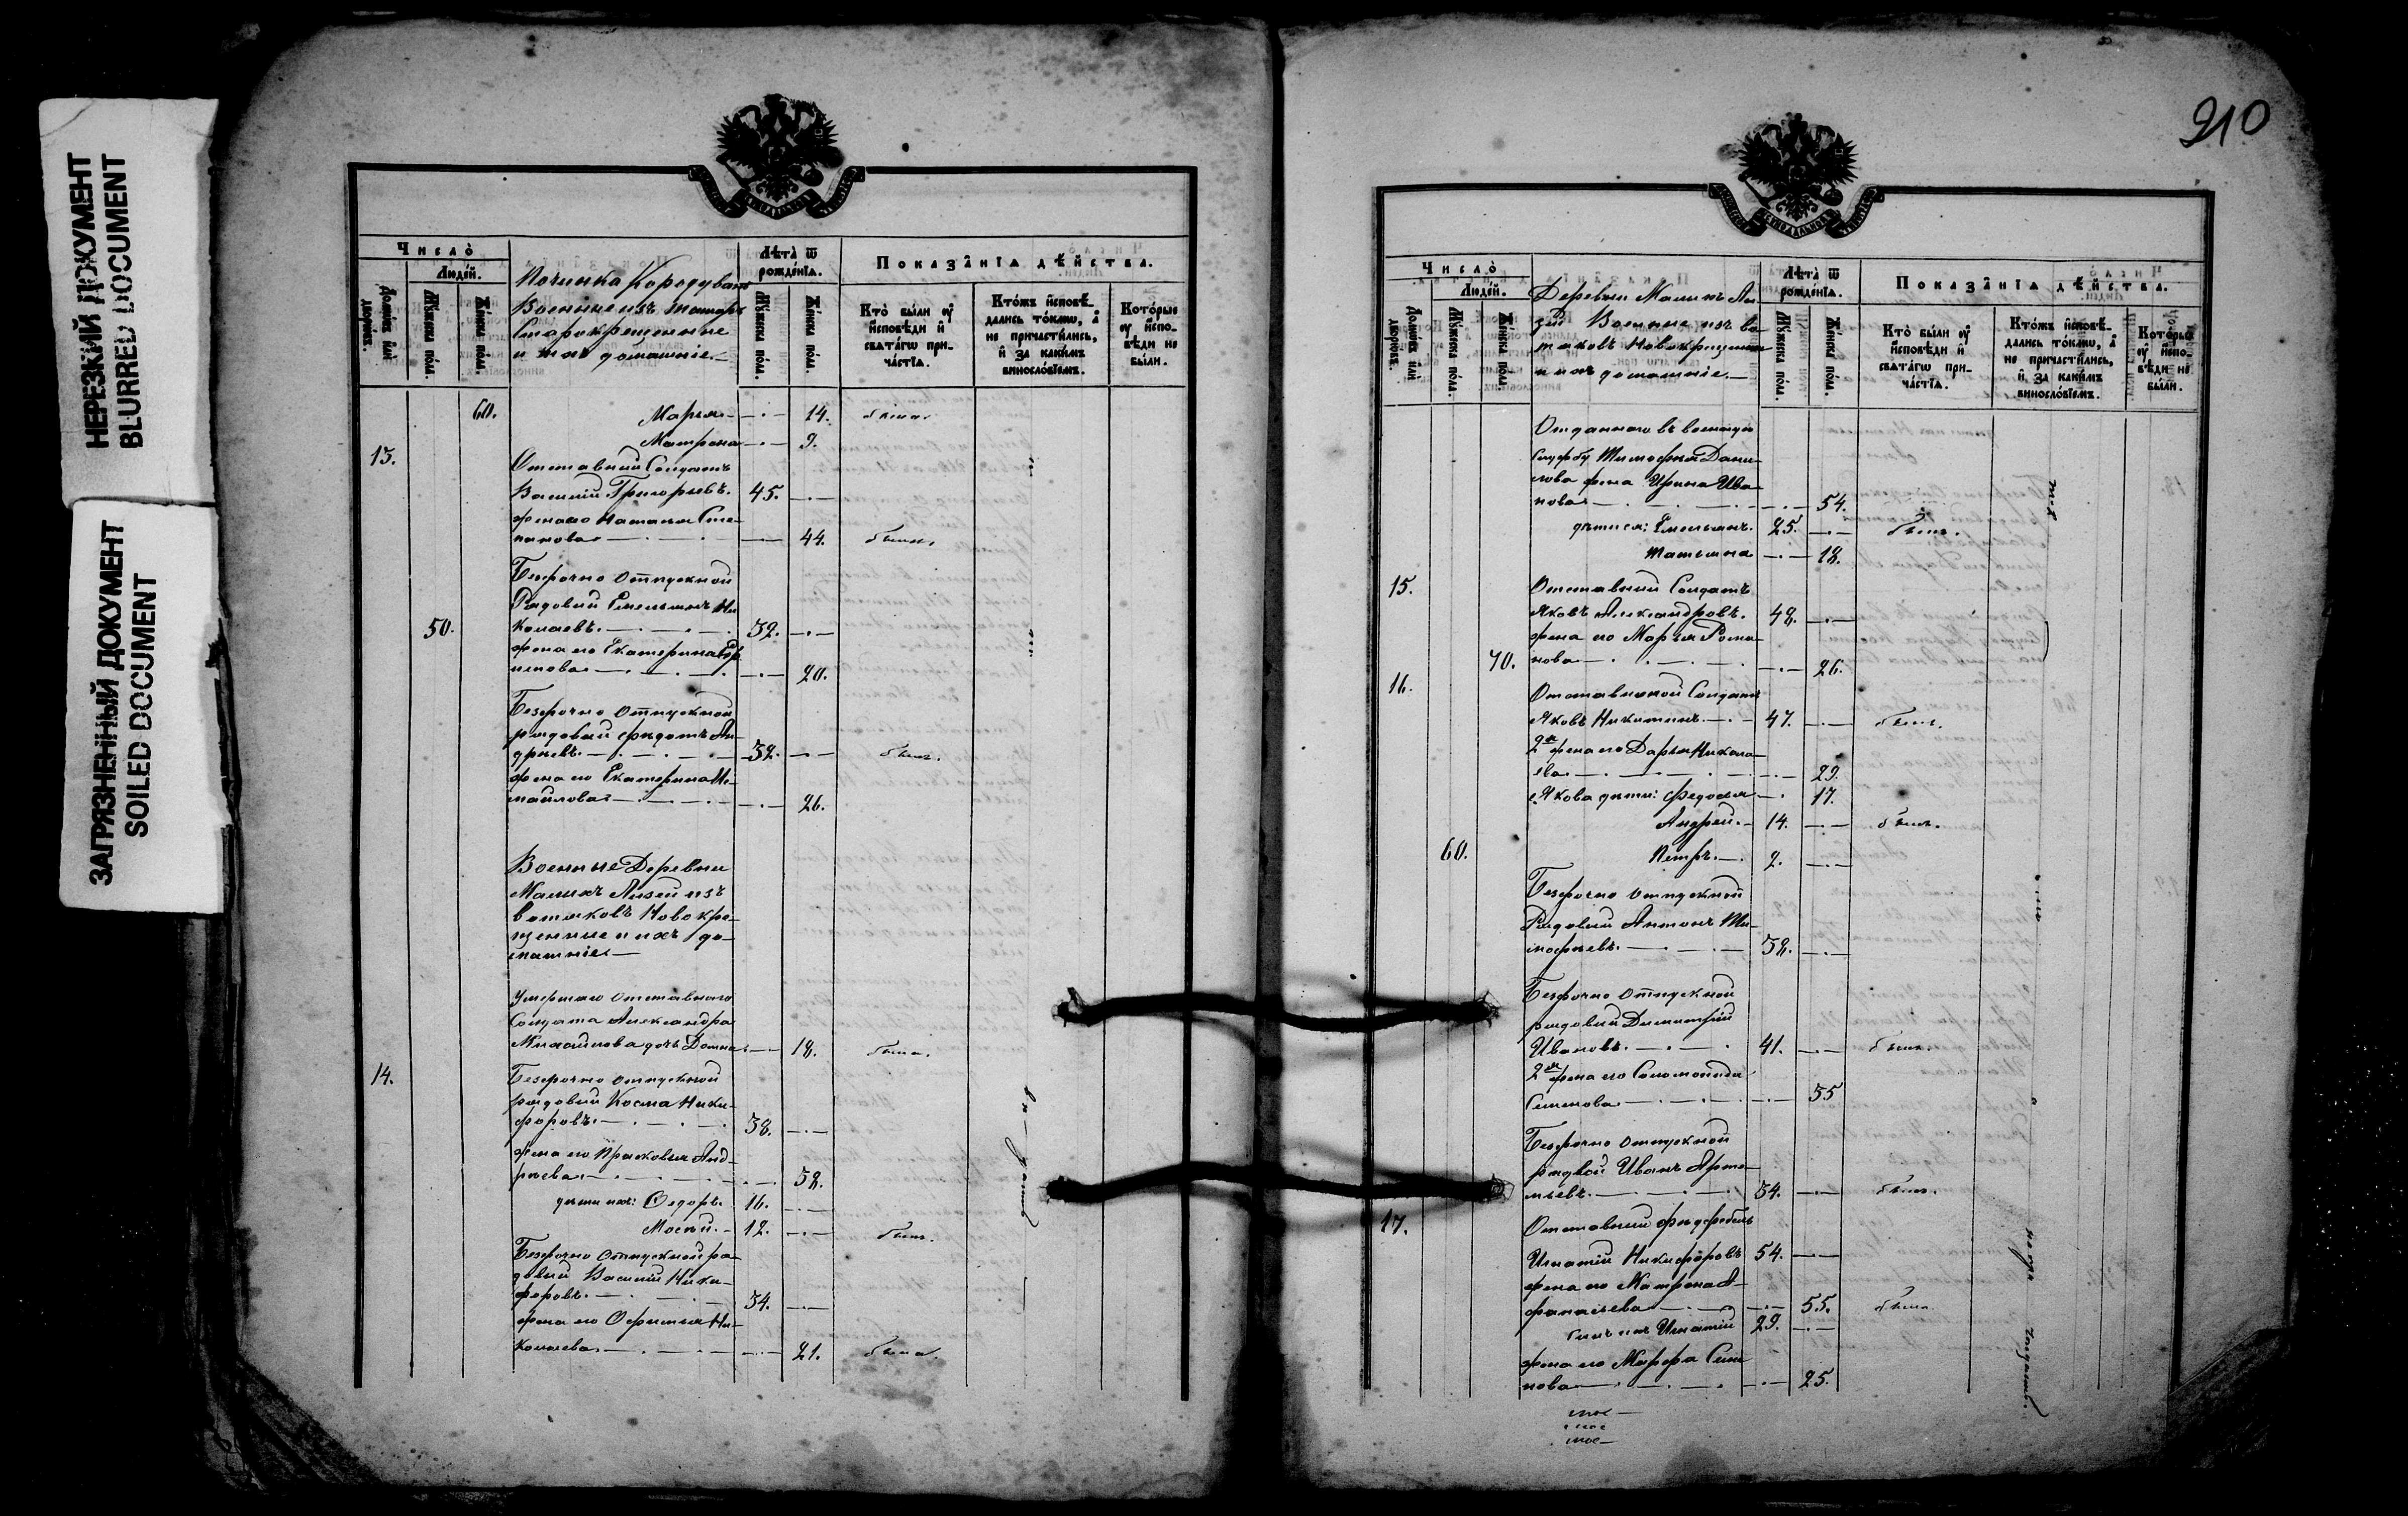 НЕРЕЗКИЙ ДОКУМЕНТ
BLURRED DOCUMENT
ЗАГРЯЗНЕННЫЙ ДОКУМЕНТ
SOILED DOCUMENT
Число
Людей.
Домовъ или дворовъ.
Мужеска пола.
Женска пола.
Починка Кородуван
Военные изъ татаръ
Старокрещенные
и ихъ домашніе.
Лѣта ѿ рожденїѧ.
Мужеска пола.
Женска пола.
Показанїѧ дѣйства.
Кто были оу исповѣди и свѧтагѡ причастїѧ.
Ктожъ исповѣдались токмѡ, а не причастились, и за какимъ винословїемъ.
Которые оу исповѣди не были.
60. Марья 14. была.
Матрона 9.
13. Отставный Солдатъ
Василій Григорьевъ. 45.
жена его Наталья Сте-
панова 44. были.
Безсрочно отпускной
Рядовый Емельянъ Ни-
50. колаевъ. 32.
жена его Екатерина
20.
Безсрочно отпускной
рядовый Федотъ Ан-
дреевъ. 32. былъ.
жена его Екатерина Из-
маилова 26.
Военные Деревни
Малыхъ Лизей изъ
вотяковъ Новокре-
щенные и ихъ до-
машніе.
Умершаго отставнаго
Солдата Александра
Михайлова дочь Домна 18. была.
14. Безсрочно отпускной
рядовый Косма Ники-
форовъ. 38.
жена его Прасковья Анд-
реева 38.
дѣти ихъ: Ѳедоръ. 16.
Мосѣй. 12. былъ.
Безсрочно отпускной ря-
довый Василій Ники-
форовъ. 34.
жена его Ефимья Ни-
колаева 21. была.
210
Число
Людей.
Домовъ или дворовъ.
Мужеска пола.
Женска пола.
Деревни Малыхъ Ли-
зей Военные изъ во-
тяковъ Новокрещенные
и ихъ домашніе.
Лѣта ѿ рожденїѧ.
Мужеска пола.
Женска пола.
Показанїѧ дѣйства.
Кто были оу исповѣди и свѧтагѡ причастїѧ.
Ктожъ исповѣдались токмѡ, а не причастились, и за какимъ винословїемъ.
Которые оу исповѣди не были.
Отданнаго въ военную
службу Тимофея Дани-
лова жена Ирина Ива-
нова 54.
дѣти ея: Емельянъ. 25. былъ.
Татьяна 18.
15. Отставный Солдатъ
Яковъ Александровъ. 48.
жена его Марья Рома-
70. нова 26.
16. Отставной Солдатъ
Яковъ Никитинъ. 47. былъ.
2я жена его Дарья Никола-
ева 29.
Якова дѣти: Федосья 17.
Андрей. 14. былъ.
60. Петръ. 2.
Безсрочно отпускной
Рядовый Антонъ Ти-
мофеевъ. 38.
Безсрочно отпускной
рядовый Димитрій
Ивановъ. 41. былъ.
2я жена его Соломонида
Семенова 35
Безсрочно отпускной
рядвой Иванъ Арте-
мьевъ. 34. былъ.
17. Отставный фельдфебель
Игнатій Никифоровъ 54.
жена его Матрона А-
фанасьева 55. была.
сынъ ихъ Игнатій 29.
жена его Марфа Семе
нова 25.